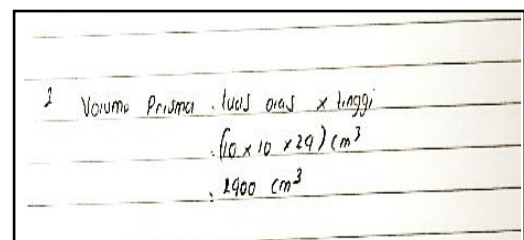 2 Volume Prisma : luas alas x tinggi
: (10 x 10 x 29) cm³
: 2900 cm³